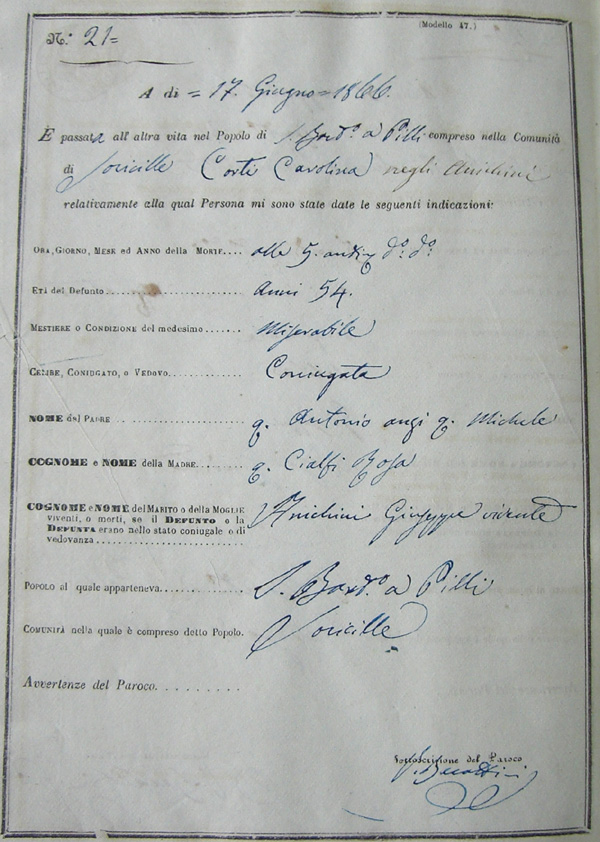 (Modello 47.)
N.° 21=
A di = 17. Giugno = 1866.
È passata all'altra vita nel Popolo di S. Bard.° a Pilli compreso nella Comunità
di Sovicille Corti Carolina negli Anichini
relativamente alla qual Persona mi sono state date le seguenti indicazioni:
Ora, Giorno, Mese ed Anno della Morte.... alle 5. antim d.° d.°
Età del Defunto.................. Anni 54.
Mestiere o Condizione del medesimo....... Miserabile
Celibe, Coniugato, o Vedovo.............. Coniugata
NOME del Padre ............... q. Antonio anzi q. Michele
COGNOME e NOME della Madre......... q. Cialfi Rosa
COGNOME e NOME del Marito o della Moglie
viventi, o morti, se il Defunto o la
Defunta erano nello stato coniugale o di
vedovanza ...................... Anichini Giuseppe vivente
Popolo al quale apparteneva............. S. Bard.° a Pilli
Comunità nella quale è compreso detto Popolo. Sovicille
Avvertenze del Paroco. . . . . . . . .
Sottoscrizione del Paroco